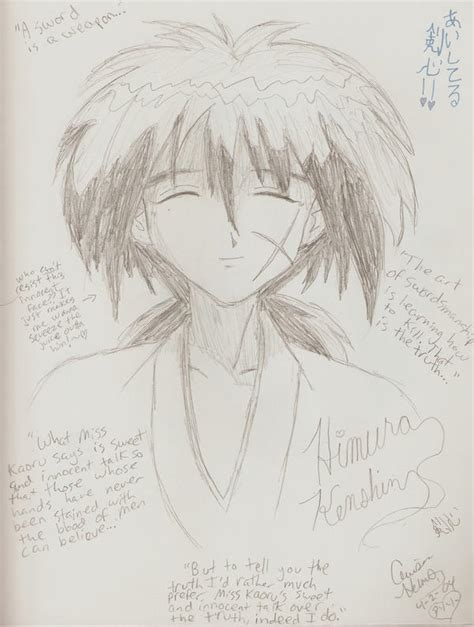 "A sword
is a weapon..."
あいしてる
剣心!!
who can't
resist this
innocent
face?? It
just makes
me wanna
squeeze the
juice outta
him!~
"The art
of swordsmanship
is learning how
to kill. That
is the truth...
"What Miss
Kaoru says is sweet
and innocent talk so
that those whose
hands have never
been stained with
the blood of men
can believe...
Himura
Kenshin
"But to tell you the
truth I'd rather much
prefer Miss Kaoru's sweet
and innocent talk over
the truth, indeed I do."